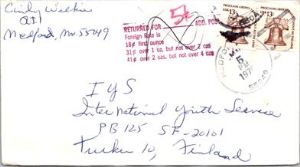 Cindy Walker
RR1
Medford, Mn 55049
5¢
RETURNED FOR ADD. POS
Foreign Rate is
18¢ first ounce
31¢ over 1 oz, but not over 2 ozs
41¢ over 2 ozs. but not over 4 ozs
13c
IYS
International Youth Service
PB 125 SF-20101
Turku 10, Finland